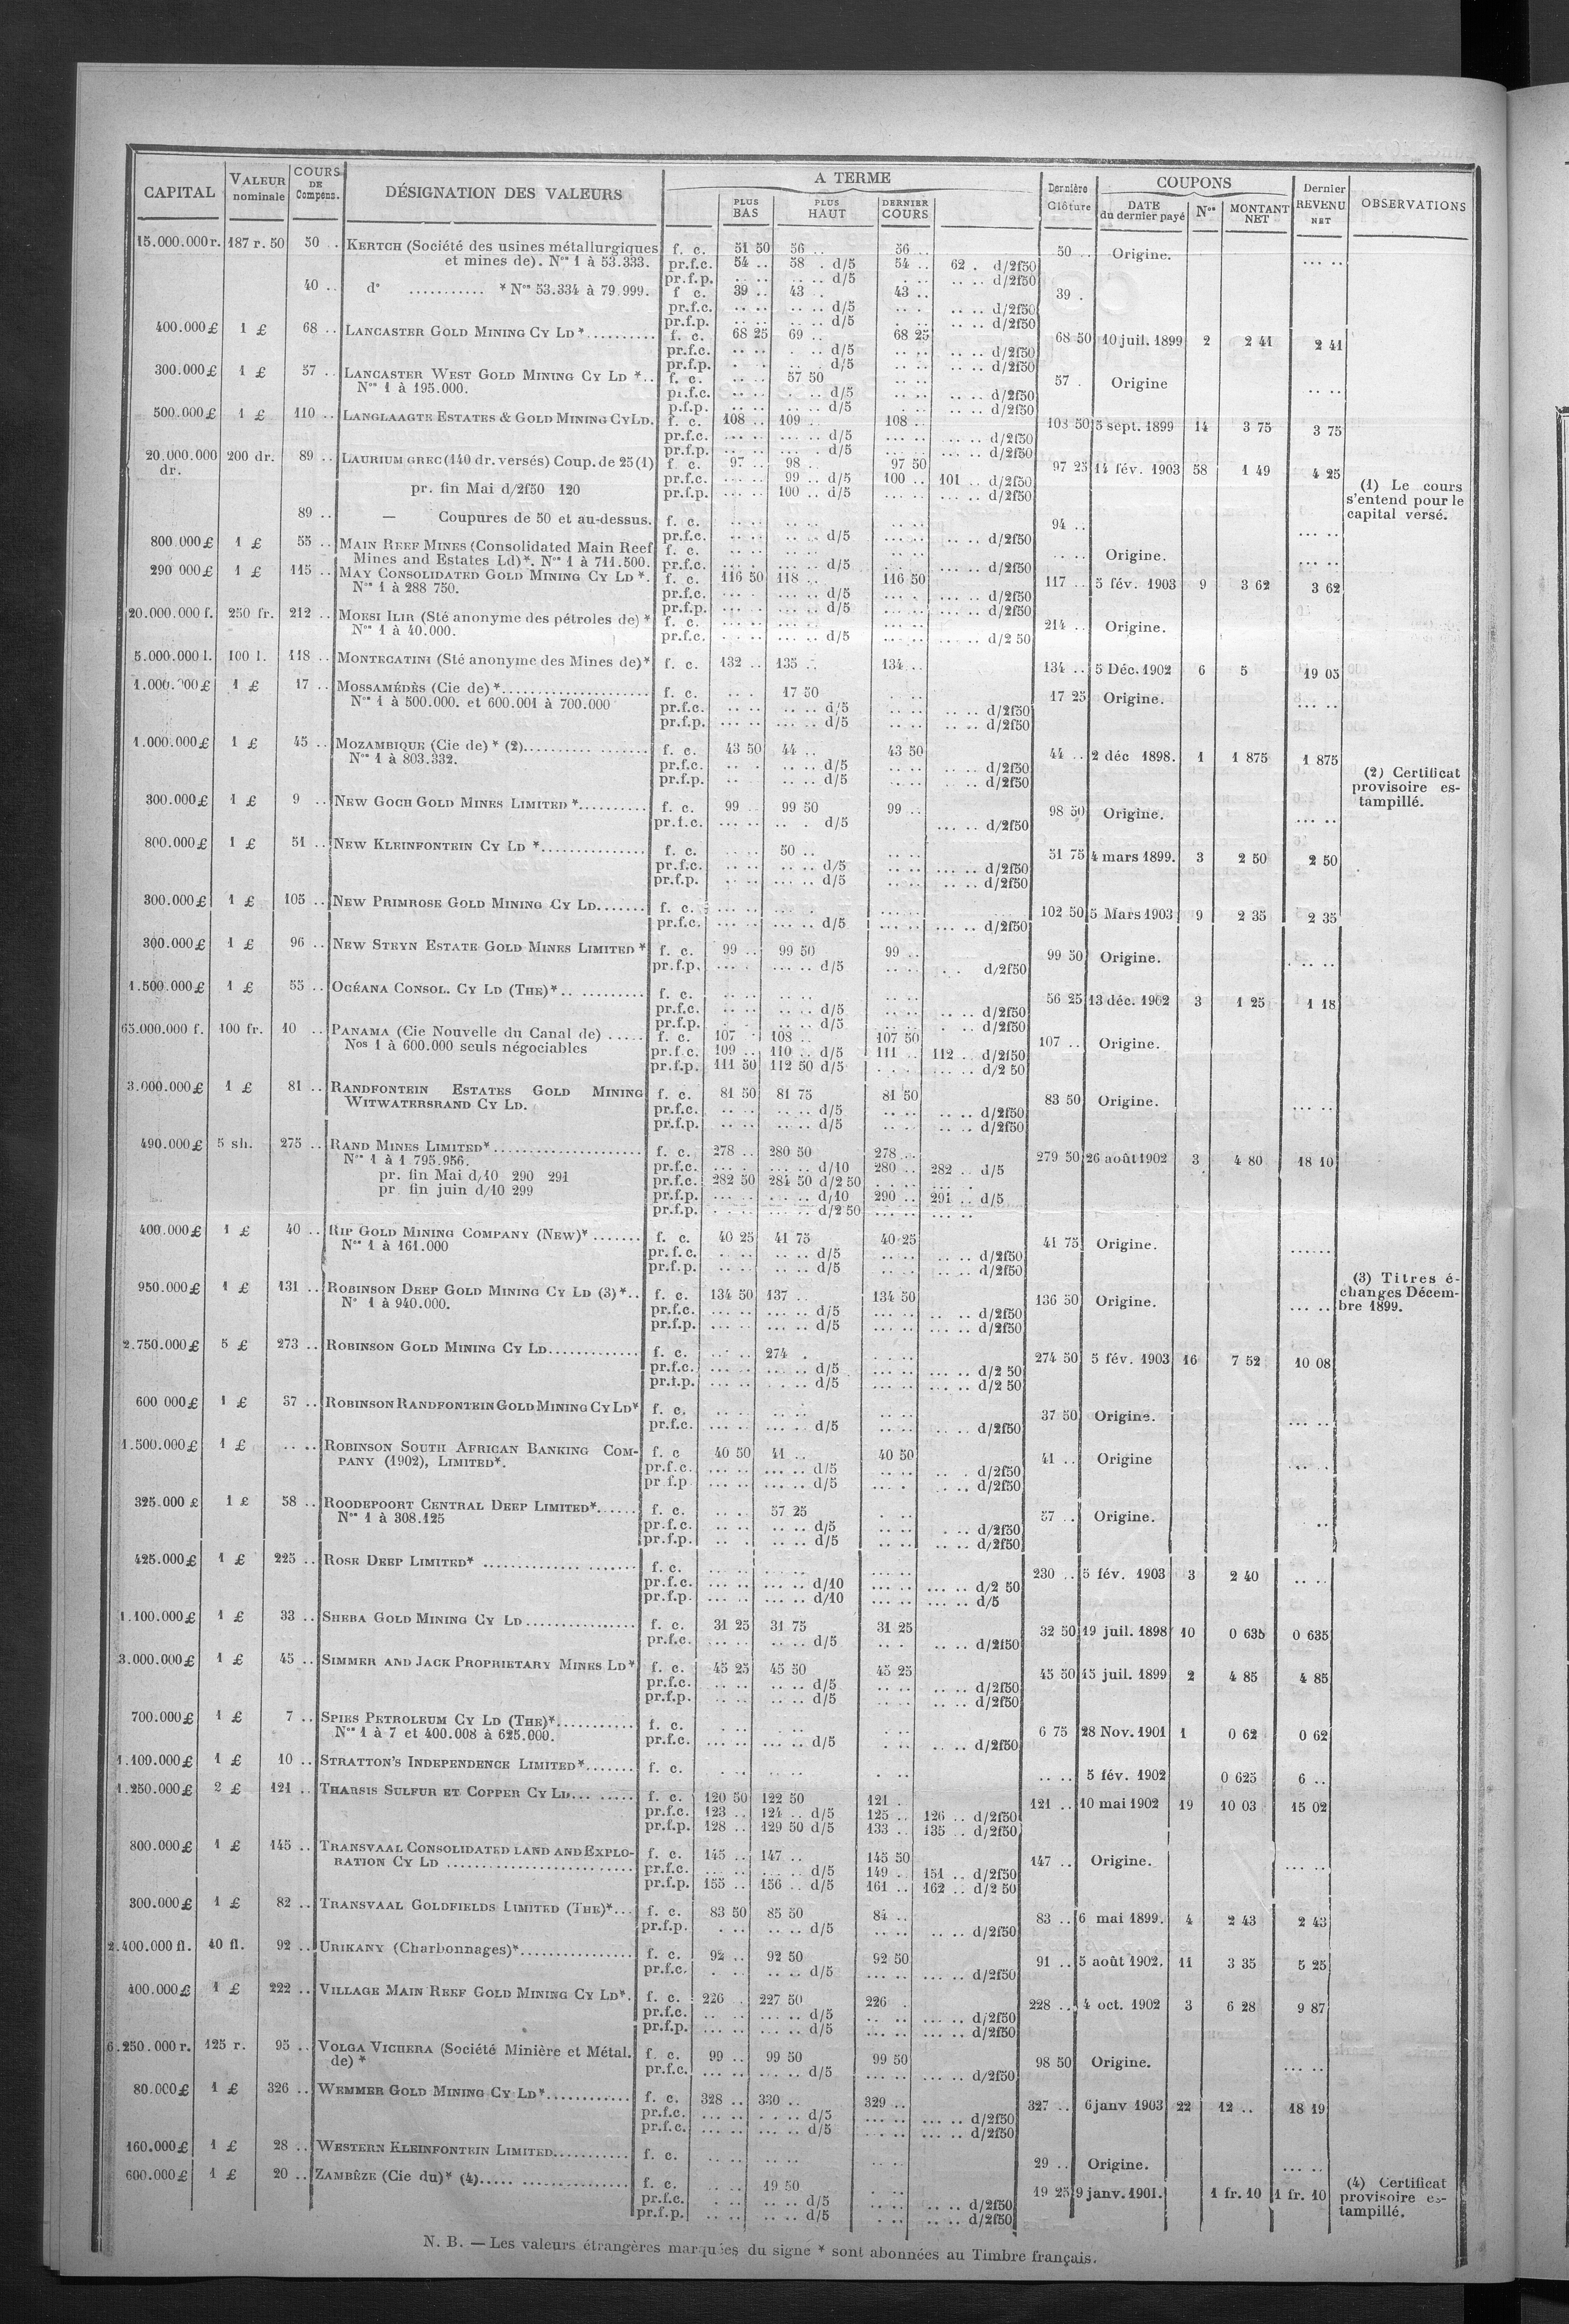 CAPITAL VALEUR nominale COURS DE Compens. DÉSIGNATION DES VALEURS A TERME PLUS BAS PLUS HAUT DERNIER COURS Dernière Clôture COUPONS DATE du dernier payé Nos MONTANT NET Dernier REVENU NET OBSERVATIONS
15.000.000 r. 187 r. 50 50 .. KERTCH (Société des usines métallurgiques f. c. 51 50 56 .. 56 .. 50 .. Origine. .... ..
et mines de). Nos 1 à 53.333. pr.f.c. 54 .. 58 . d/5 54 .. 62 . d/2f50
pr.f.p. .. .. .. .. d/5 . .. .. .. d/2f50
40 .. d° ........... * Nos 53.334 à 79.999. f c. 39 .. 43 . 43 .. 39 .
pr.f.c. .. .. .. .. d/5 .. . .. .. d/2f50
pr.f.p. .. .. .. .. d/5 . .. .. .. d/2f50
400.000 £ 1 £ 68 .. LANCASTER GOLD MINING CY LD *.......... f. c. 68 25 69 .. 68 25 68 50 10 juil. 1899 2 2 41 2 41
pr.f.c. .. .. . .. d/5 .. .. .. .. d/2f50
pr.f.p. . . . .. d/5 .. .. .. .. d/2f50
300.000 £ 1 £ 57 .. LANCASTER WEST GOLD MINING CY LD *.. f. c. .. .. 57 50 .. .. 57 . Origine .. ..
Nos 1 à 195.000. pr.f.c. .. .. . .. d/5 .. .. .. .. d/2f50
p.f.p. .. .. .. .. d/5 . .. .. .. d/2f50
500.000 £ 1 £ 110 .. LANGLAAGTE ESTATES & GOLD MINING CY LD. f. c. 108 .. 109 . 108 .. 108 50 5 sept. 1899 14 3 75 3 75
pr.f.c. ... .. ... .. d/5 ... .. ... .. d/2f50
pr.f.p. ... .. ... . d/5 ... .. ... .. d/2f50
20.000.000 dr. 200 dr. 89 .. LAURIUM GREC (140 dr. versés) Coup. de 25 (1) f c. 97 .. 98 .. 97 50 97 25 14 fév. 1903 58 1 49 4 25
pr.f.c. ... .. 99 .. d/5 100 .. 101 .. d/2f50
pr. fin Mai d/2f50 120 pr.f.p. ... .. 100 .. d/5 ... .. ... .. d/2f50 (1) Le cours
s'entend pour le
capital versé.
89 .. — Coupures de 50 et au-dessus. f. c. .. .. .. .. .. .. 94 .. ... ..
pr.f.c. .. .. .. .. d/5 .. .. .. .. d/2f50
800.000 £ 1 £ 55 .. MAIN REEF MINES (Consolidated Main Reef f. c. .. .. .. .. .. .. .. .. Origine. ... ..
Mines and Estates Ld)*. Nos 1 à 711.500. pr.f.c. ... . ... .. d/5 ... .. ... .. d/2f50
290 000 £ 1 £ 115 .. MAY CONSOLIDATED GOLD MINING CY LD *. f. c. 116 50 118 .. 116 50 117 .. 5 fév. 1903 9 3 62 3 62
Nos 1 à 288 750. pr.f.c. ... . ... .. d/5 ... . ... .. d/2f50
pr.f.p. ... .. ... .. d/5 ... .. ... .. d/2f50
20.000.000 f. 250 fr. 212 .. MOESI ILIR (Sté anonyme des pétroles de) * f. c. ... .. ... .. ... .. 214 .. Origine.
Nos 1 à 40.000. pr.f.c. .. .. ... .. d/5 ... .. .. .. d/2 50
5.000.000 l. 100 l. 118 .. MONTECATINI (Sté anonyme des Mines de)* f. c. 132 .. 135 .. 134 .. 134 .. 5 Déc. 1902 6 5 19 05
£ 1 £ 17 .. MOSSAMÉDÈS (Cie de) *..................... f. c. .. . 17 50 . .. 17 25 Origine. ... ..
Nos 1 à 500.000. et 600.001 à 700.000 pr.f.c. .. .. .. .. d/5 .. .. .. .. d/2f50
pr.f.p. ... .. ... .. d/5 .. .. .. .. d/2f50
1.000.000 £ 1 £ 45 .. MOZAMBIQUE (Cie de) * (2).......... ....... f. c. 43 50 44 .. 43 50 44 .. 2 déc 1898. 1 1 875 1 875
Nos 1 à 803.332. pr.f.c. .. . .. .. d/5 .. .. .. .. d/2f50 (2) Certificat
pr.f.p. .. .. .. d/5 .. .. .. .. d/2f50 provisoire es-
tampillé.
300.000 £ 1 £ 9 .. NEW GOCH GOLD MINES LIMITED *.......... f. c. 99 . 99 50 99 .. 98 50 Origine. ... ..
pr.f.c. ... .. .. . d/5 ... .. d/2f50
800.000 £ 1 £ 51 .. NEW KLEINFONTEIN CY LD *............... f. c. .. . 50 .. .. .. 51 75 4 mars 1899. 3 2 50 2 50
pr.f.c. .. .. .. .. d/5 .. .. ... .. d/2f50
pr.f.p. .. .. ... .. d/5 .. .. .. .. d/2f50
300.000 £ 1 £ 105 .. NEW PRIMROSE GOLD MINING CY LD....... f. c. ... .. ... . ... .. 102 50 5 Mars 1903 9 2 35 2 35
pr.f.c. ... .. ... .. d/5 ... .. ... .. d/2f50
300.000 £ 1 £ 96 .. NEW STEYN ESTATE GOLD MINES LIMITED * f. c. 99 .. 99 50 99 .. 99 50 Origine. . .. ..
pr.f.p. ... . ... .. d/5 .. .. . . d/2f50
1.500.000 £ 1 £ 55 .. OCÉANA CONSOL. CY LD (THE)*.. ......... f. c. .. .. .. .. .. .. 56 25 13 déc. 1902 3 1 25 1 18
pr.f.c. .. .. .. .. d/5 .. .. .. .. d/2f50
pr.f.p. . . .. .. d/5 .. . . .. d/2f50
65.000.000 f. 100 fr. 10 .. PANAMA (Cie Nouvelle du Canal de) ..... f. c. 107 . 108 .. 107 50 107 .. Origine.
Nos 1 à 600.000 seuls négociables pr.f c. 109 .. 110 .. d/5 111 .. 112 .. d/2f50
pr.f.p. 111 50 112 50 d/5 . . . ... .. d/2 50
3.000.000 £ 1 £ 81 .. RANDFONTEIN ESTATES GOLD MINING f. c. 81 50 81 75 81 50 83 50 Origine. ... ..
WITWATERSRAND CY LD. pr.f.c. .. .. .. .. d/5 .. .. .. .. d/2f50
pr.f.p. .. .. .. .. d/5 .. .. .. .. d/2f50
490.000 £ 5 sh. 275 .. RAND MINES LIMITED*..................... f. c. 278 .. 280 50 278 .. 279 50 26 août 1902 3 4 80 18 10
Nos 1 à 1 795.956. pr.f.c. ... . ... .. d/10 280 .. 282 .. d/5
pr. fin Mai d/10 290 291 pr.f.c. 282 50 284 50 d/2 50 . .. .. ... .
pr fin juin d/10 299 pr.f.p. ... .. . .. d/10 290 .. 291 .. d/5
pr.f.p. . . .. ... .. d/2 50 ... .. ... ..
400.000 £ 1 £ 40 .. RIP GOLD MINING COMPANY (NEW)* ....... f. c. 40 25 41 75 40 25 41 75 Origine. ......
Nos 1 à 161.000 pr. f. c. .. .. .. .. d/5 .. .. .. .. d/2f50
pr.f.p. .. .. .. .. d/5 .. . .. .. d/2f50
950.000 £ 1 £ 131 .. ROBINSON DEEP GOLD MINING CY LD (3)*.. f. c. 134 50 137 .. 134 50 136 50 Origine. ... .. (3) Titres é-
N° 1 à 940.000. pr.f.c. ... .. ... .. d/5 ... .. .. .. d/2f50 changes Décem-
pr.f.p. ... .. ... .. d/5 ... .. ... .. d/2f50 bre 1899.
2.750.000 £ 5 £ 273 .. ROBINSON GOLD MINING CY LD............. f. c. ... .. 274 . . .. .. 274 50 5 fév. 1903 16 7 52 10 08
pr.f.c. ... .. ... .. d/5 ... .. ... .. d/2 50
pr.f.p. ... .. . .. d/5 ... .. ... .. d/2 50
600 000 £ 1 £ 37 .. ROBINSON RANDFONTEIN GOLD MINING CY LD* f. c. .. .. .. .. .. .. 37 50 Origine. ... ..
pr.f.c. ... .. ... .. d/5 .. .. .. .. d/2f50
1.500.000 £ 1 £ .. .. ROBINSON SOUTH AFRICAN BANKING COM- f. c 40 50 41 .. 40 50 41 .. Origine ... ..
PANY (1902), LIMITED*. pr.f.c. ... .. ... .. d/5 .. .. .. . d/2f50
pr f.p ... .. ... .. d/5 ... . .. .. d/2f50
325.000 £ 1 £ 58 .. ROODEPOORT CENTRAL DEEP LIMITED*...... f. c. .. . 57 25 . .. 57 .. Origine. ..
Nos 1 à 308.125 pr.f.c. .. .. .. .. d/5 .. .. . .. d/2f50
pr.f.p. .. . .. .. d/5 .. .. .. .. d/2f50
425.000 £ 1 £ 225 .. ROSE DEEP LIMITED* ...................... f. c. ... .. ... .. ... .. 230 .. 5 fév. 1903 3 2 40 .. ..
pr.f.c. ... .. ... .. d/10 ... .. ... .. d/2 50
pr.f.p. ... .. ... .. d/10 ... .. ... .. d/5
1.100.000 £ 1 £ 33 .. SHEBA GOLD MINING CY LD ................ f. c. 31 25 31 75 31 25 32 50 19 juil. 1898 10 0 635 0 635
pr.f.c. .. .. .. .. d/5 .. . .. .. d/2f50
3.000.000 £ 1 £ 45 .. SIMMER AND JACK PROPRIETARY MINES LD* f. c. 45 25 45 50 45 25 45 50 15 juil. 1899 2 4 85 4 85
pr.f.c. .. .. .. .. d/5 .. .. .. .. d/2f50
pr.f.p. .. .. .. .. d/5 .. .. .. .. d/2f50
700.000 £ 1 £ 7 .. SPIES PETROLEUM CY LD (THE)*........... f. c. . .. .. . .. 6 75 28 Nov. 1901 1 0 62 0 62
Nos 1 à 7 et 400.008 à 625.000. pr.f.c. ... .. ... .. d/5 . .. .. .. d/2f50
1.100.000 £ 1 £ 10 .. STRATTON'S INDEPENDENCE LIMITED*....... f. c. . .. .. . . .. .. .. 5 fév. 1902 0 625 6 ..
1.250.000 £ 2 £ 121 .. THARSIS SULFUR ET COPPER CY LD... ..... f. c. 120 50 122 50 121 . 121 .. 10 mai 1902 19 10 03 15 02
pr.f.c. 123 .. 124 .. d/5 125 .. 126 .. d/2f50
pr.f.p. 128 .. 129 50 d/5 133 .. 135 .. d/2f50
800.000 £ 1 £ 145 .. TRANSVAAL CONSOLIDATED LAND AND EXPLO- f. c. 145 .. 147 .. 145 50 147 .. Origine. ... ..
RATION CY LD ........................... pr.f.c. ... .. ... .. d/5 149 . 151 .. d/2f50
pr.f.p. 155 .. 156 .. d/5 161 .. 162 .. d/2 50
300.000 £ 1 £ 82 .. TRANSVAAL GOLDFIELDS LIMITED (THE)*... f. c. 83 50 85 50 84 .. 83 .. 6 mai 1899. 4 2 43 2 43
pr.f.p. . .. .. .. d/5 .. .. d/2f50
2.400.000 fl. 40 fl. 92 .. URIKANY (Charbonnages)*................ f. c. 92 .. 92 50 92 50 91 .. 5 août 1902. 11 3 35 5 25
pr.f.c. . .. .. .. d/5 ... .. ... .. d/2f50
400.000 £ 1 £ 222 .. VILLAGE MAIN REEF GOLD MINING CY LD*. f. c. 226 .. 227 50 226 . 228 .. 4 oct. 1902 3 6 28 9 87
pr.f.c. .. .. ... .. d/5 .. .. ... .. d/2f50
pr.f.p. ... .. ... .. d/5 ... .. ... .. d/2f50
6.250.000 r. 125 r. 95 .. VOLGA VICHERA (Société Minière et Métal. f. c. 99 .. 99 50 99 50 98 50 Origine. ... ..
de) * pr.f.c. ... .. ... .. d/5 ... .. ... .. d/2f50
80.000 £ 1 £ 326 .. WEMMER GOLD MINING CY LD*............. f. c. 328 .. 330 .. 329 .. 327 .. 6 janv 1903 22 12 .. 18 19
pr.f.c. ... .. . .. d/5 ... .. ... .. d/2f50
pr.f.c. ... .. ... .. d/5 ... .. ... .. d/2f50
160.000 £ 1 £ 28 .. WESTERN KLEINFONTEIN LIMITED........... f. c. .. .. .. .. .. .. 29 .. Origine. ... ..
600.000 £ 1 £ 20 .. ZAMBÈZE (Cie du)* (4)..... ............... f. c. . .. 19 50 . .. 19 25 9 janv. 1901. 1 fr. 10 1 fr. 10 (4) Certificat
pr.f.c. . .. .. .. d/5 .. .. .. .. d/2f50 provisoire es-
pr.f.p. .. .. .. .. d/5 . .. .. .. d/2f50 tampillé.
N. B. — Les valeurs étrangères marquées du signe * sont abonnées au Timbre français.